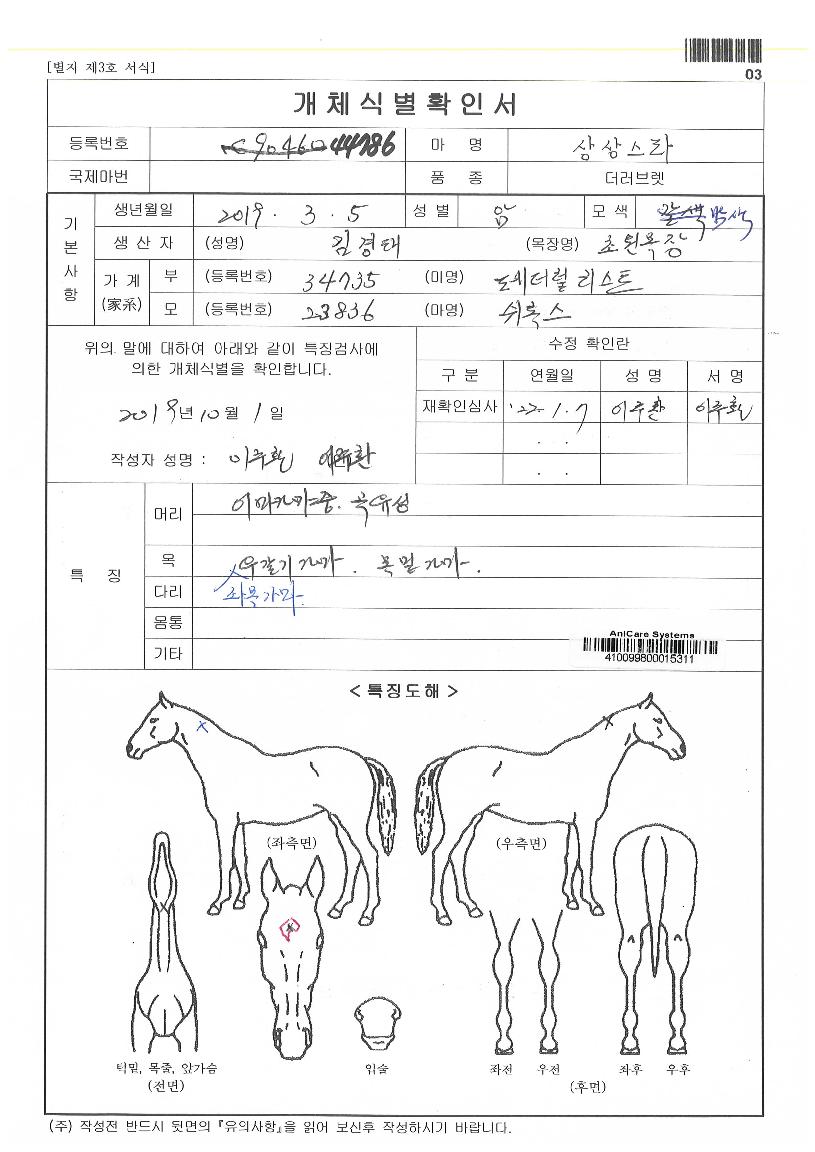 [별지 제3호 서식]
03
개체식별확인서
등록번호 44786 마 명 삼상스라
국제마번 품 종 더러브렛
기본사항
생년월일 2019 . 3 . 5 성 별 암 모 색 밤색
생 산 자 (성명) 김경태 (목장명) 초원목장
가 계 (家系) 부 (등록번호) 34735 (마명) 리스트
모 (등록번호) 23836 (마명) 쉬혹스
위의 말에 대하여 아래와 같이 특징검사에
의한 개체식별을 확인합니다.
2019년 10월 1일
작성자 성명 : 이주환 이주환
수정 확인란
구 분 연월일 성 명 서 명
재확인심사 '22. 1. 7 이주환 이주환
. .
. .
특 징
머리 곡유성
목 우갈기 가마. 목밑 가마.
다리 좌목가마.
몸통
기타
AniCare Systems
410099800015311
< 특징도해 >
(좌측면) (우측면)
턱밑, 목줄, 앞가슴 입술 좌전 우전 좌후 우후
(전면) (후면)
(주) 작성전 반드시 뒷면의 『유의사항』을 읽어 보신후 작성하시기 바랍니다.